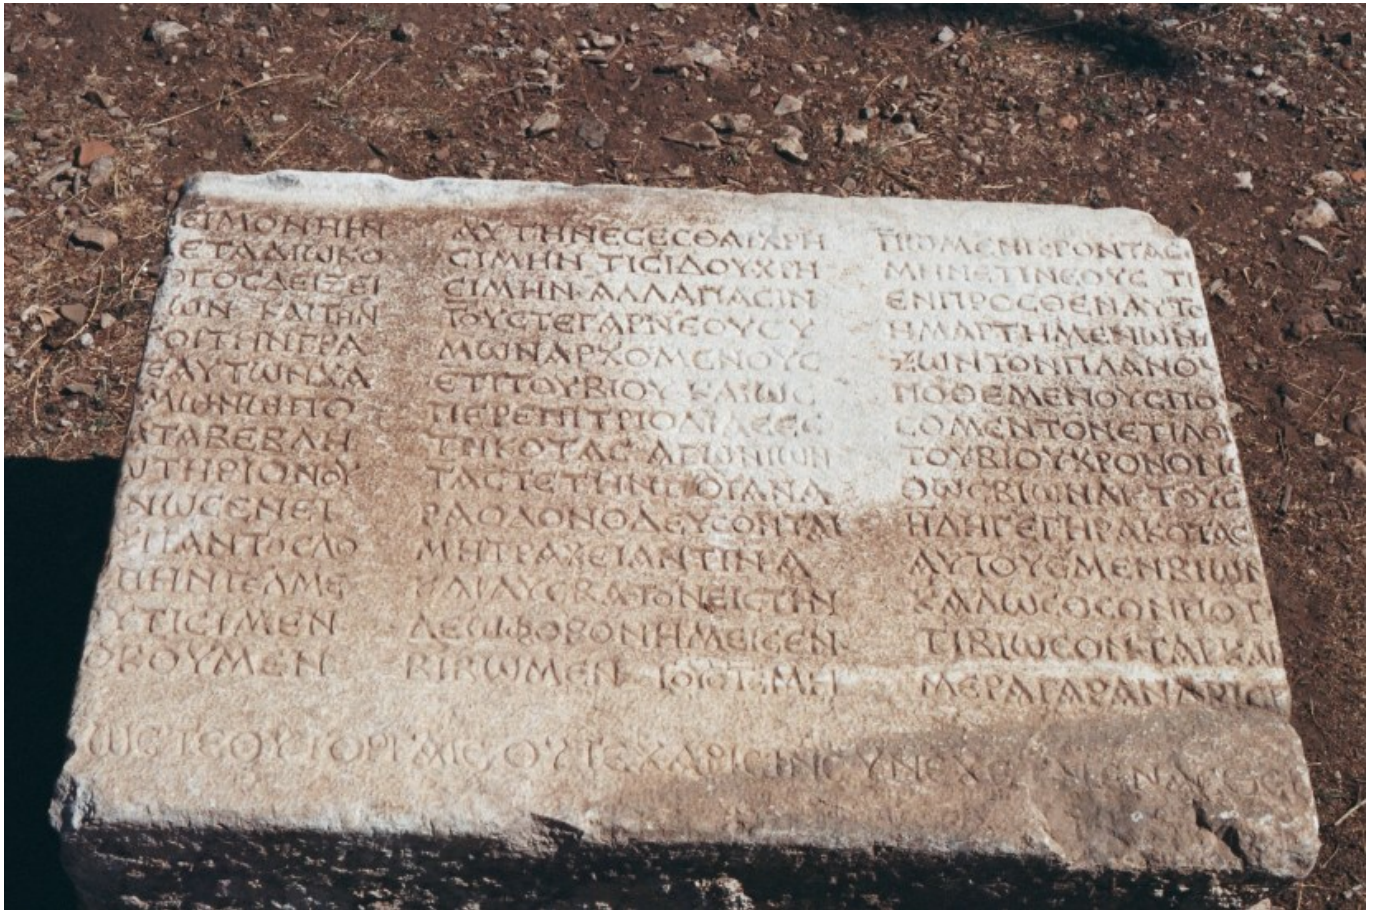 ΕΙΜΟΝΗΗΝ
ΕΤΑΔΙΩΚΟ
ΡΓΟϹΔΕΙΞΕΙ
ΙΩΝ ΚΑΙΤΗΝ
ΟΙΤΗΝΓΡΑ
ΕΑΥΤΩΝΧΑ
ΜΙΩΝΩΠΟ
ΑΤΑΒΕΒΛΗ
ΩΤΗΡΙΟΝΟΥ
ΝΙΩϹΕΝΕΤ
ΥΠΑΝΤΟϹΛΟ
ΠΗΝΤΕΛΜΕ
ΥΤΙϹΙΜΕΝ
ΟΚΟΥΜΕΝ
ΑΥΤΗΝΕϹΕϹΘΑΙΧΡΗ
ϹΙΜΗΝ ΤΙϹΙΔΟΥΧΡΗ
ϹΙΜΗΝ ΑΛΛΑΠΑϹΙΝ
ΤΟΥϹΤΕΓΑΡΝΕΟΥϹΥ
ΜΩΝΑΡΧΟΜΕΝΟΥϹ
ΕΤΙΤΟΥΒΙΟΥ ΚΑΙΩϹ
ΠΕΡΕΠΙΤΡΙΟΔΙΔΕΕϹ
ΤΡΙΚΟΤΑϹ ΑΓΩΝΙΩΝ
ΤΑϹΤΕΤΗΝΠΟΙΑΝΑ
ΡΑΟΔΟΝΟΔΕΥϹΟΝΤΑΙ
ΜΗΤΡΑΧΕΙΑΝΤΙΝΑ
ΚΑΙΔΥϹΒΑΤΟΝΕΙϹΤΗΝ
ΛΕΩΦΟΡΟΝΗΜΕΙϹΕΝ
ΒΙΒΩΜΕΝ ΤΟΥϹΤΕΜΗ
ΠΩΜΕΝΓΕΡΟΝΤΑϹ
ΜΗΝΕΤΙΝΕΟΥϹ ΤΙ
ΕΝΠΡΟϹΘΕΝΑΥΤΟ
ΗΜΑΡΤΗΜΕΝΩΝ
ΖΩΝΤΟΝΠΛΑΝΟΥ
ΠΟΘΕΜΕΝΟΥϹΠΟ
ϹΟΜΕΝΤΟΝΕΤΙΛΟΙ
ΤΟΥΒΙΟΥΧΡΟΝΟΝ
ΘΩϹΒΙΩΝΑΙ ΤΟΥϹ
ΗΔΗΓΕΓΗΡΑΚΟΤΑϹ
ΑΥΤΟΥϹΜΕΝΒΙΩΝ
ΚΑΛΩϹΟϹΟΝΠΟΤ
ΤΙΒΙΩϹΟΝΤΑΙΚΑΙ
ΜΕΡΑΓΑΡΑΝΑΡΙϹ
ΩϹΤΕΟΥΤΟΡΓΑΙϹ ΟΥΤΕΧΑΡΙϹΙΝϹΥΝΕΧΕ